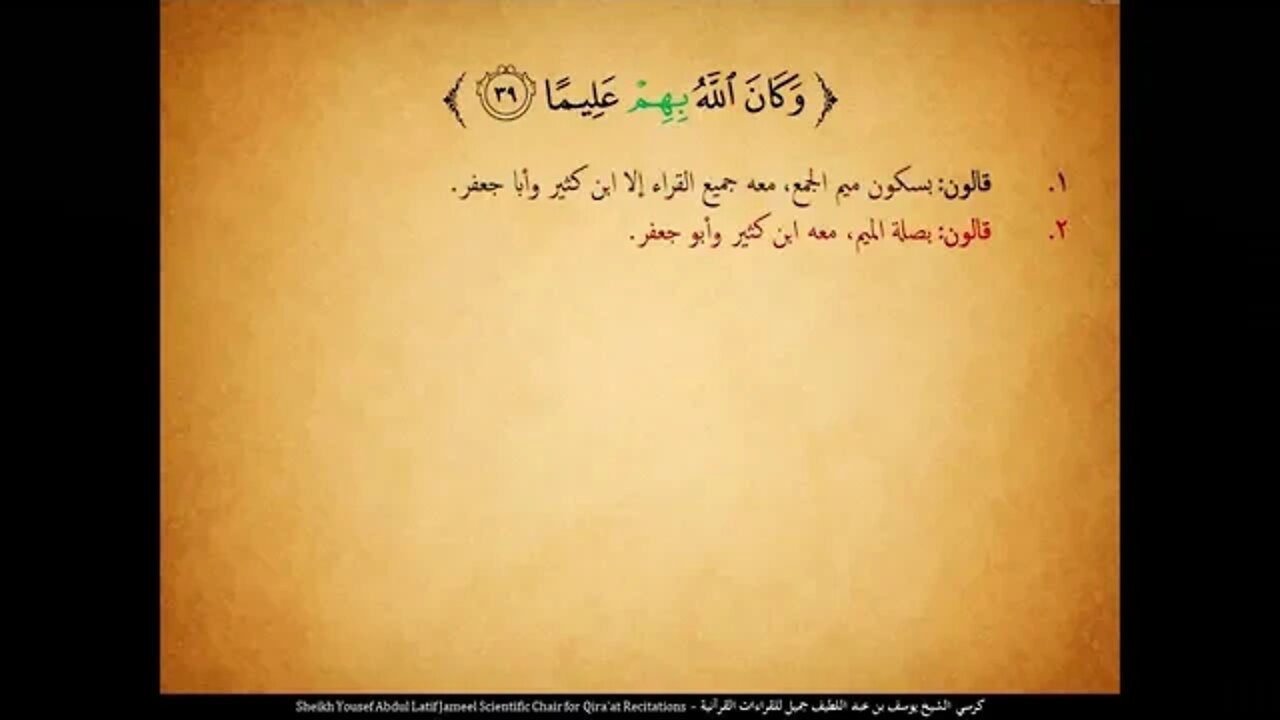 ﴿ وَكَانَ ٱللَّهُ بِهِمْ عَلِيمًا ٣٩ ﴾
١. قالون: بسكون ميم الجمع، معه جميع القراء إلا ابن كثير وأبا جعفر.
٢. قالون: بصلة الميم، معه ابن كثير وأبو جعفر.
Sheikh Yousef Abdul Latif Jameel Scientific Chair for Qira'at Recitations - كرسي الشيخ يوسف بن عبد اللطيف جميل للقراءات القرآنية